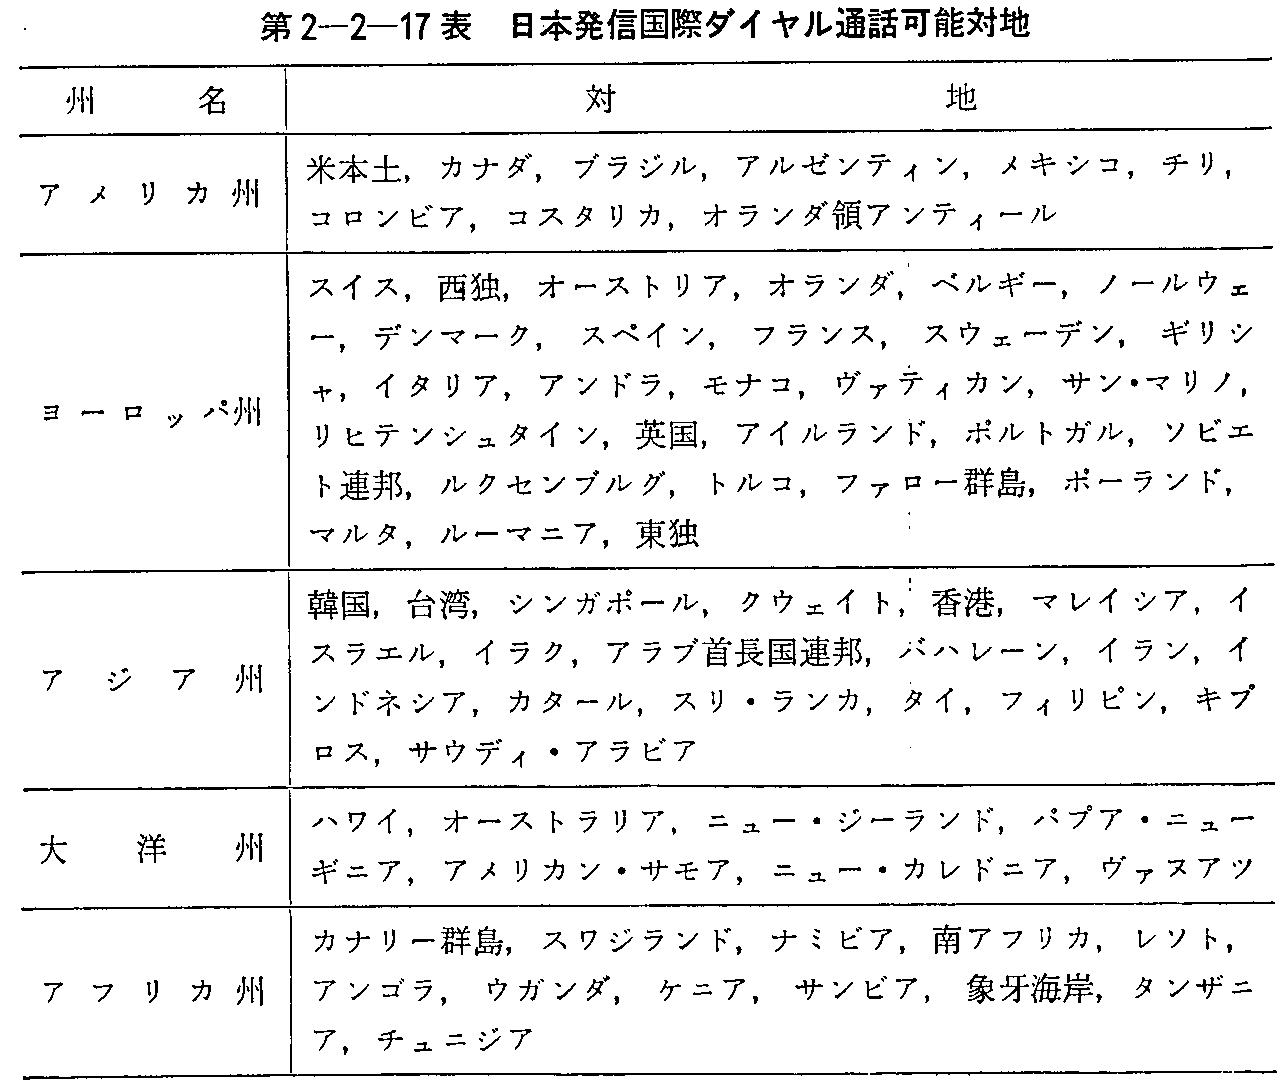 第2―2―17表 日本発信国際ダイヤル通話可能対地
州名 対地
アメリカ州
米本土, カナダ, ブラジル, アルゼンティン, メキシコ, チリ,
コロンビア, コスタリカ, オランダ領アンティール
ヨーロッパ州
スイス, 西独, オーストリア, オランダ, ベルギー, ノールウェ
ー, デンマーク, スペイン, フランス, スウェーデン, ギリシ
ャ, イタリア, アンドラ, モナコ, ヴァティカン, サン・マリノ,
リヒテンシュタイン, 英国, アイルランド, ポルトガル, ソビエ
ト連邦, ルクセンブルグ, トルコ, ファロー群島, ポーランド,
マルタ, ルーマニア, 東独
アジア州
韓国, 台湾, シンガポール, クウェイト, 香港, マレイシア, イ
スラエル, イラク, アラブ首長国連邦, バハレーン, イラン, イ
ンドネシア, カタール, スリ・ランカ, タイ, フィリピン, キプ
ロス, サウディ・アラビア
大洋州
ハワイ, オーストラリア, ニュー・ジーランド, パプア・ニュー
ギニア, アメリカン・サモア, ニュー・カレドニア, ヴァヌアツ
アフリカ州
カナリー群島, スワジランド, ナミビア, 南アフリカ, レソト,
アンゴラ, ウガンダ, ケニア, ザンビア, 象牙海岸, タンザニ
ア, チュニジア